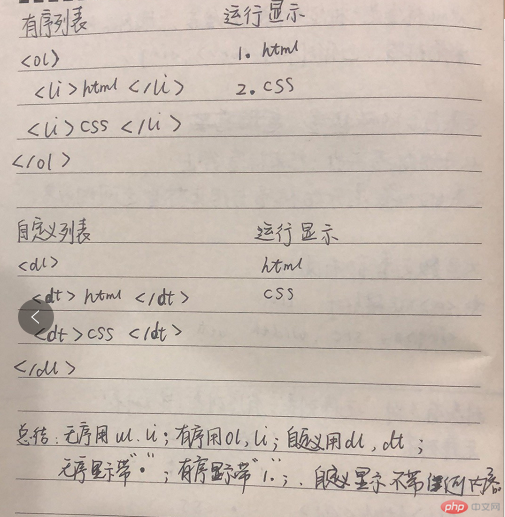 有序列表 运行显示
<ol> 1. html
<li>html </li> 2. css
<li>css </li>
</ol>
自定义列表 运行显示
<dl> html
<dt> html </dt> css
<dt>css </dt>
</dl>
总结:无序用ul.li;有序用ol,li;自定义用dl,dt;
无序显示带"•";有序显示带"1.";.自定义显示不带任何内容
php 中文网